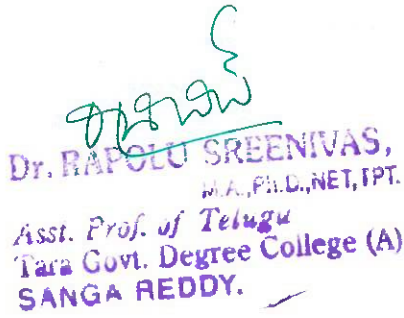 Dr. RAPOLU SREENIVAS,
M.A.,Ph.D.,NET,TPT.
Asst. Prof. of Telugu
Tara Govt. Degree College (A)
SANGA REDDY.